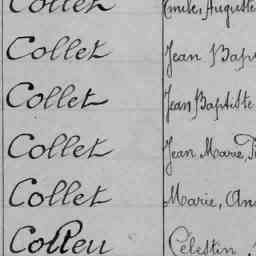 Collet Emile, Auguste
Collet Jean Bap
Collet Jean Baptiste
Collet Jean Marie,
Collet Marie, An
Colleu Célestin,